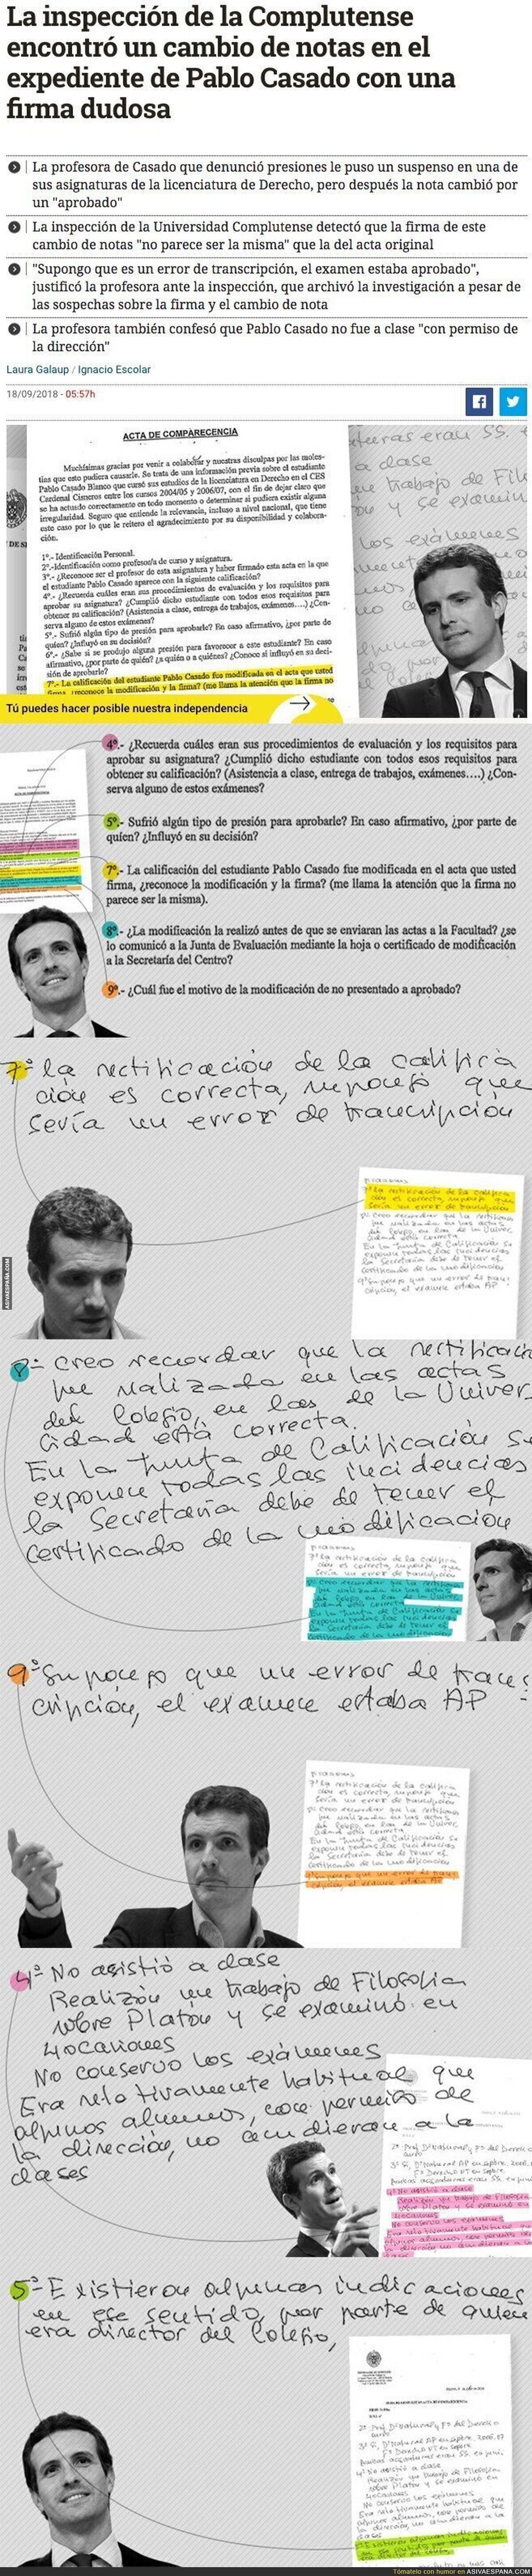 La inspección de la Complutense
encontró un cambio de notas en el
expediente de Pablo Casado con una
firma dudosa
La profesora de Casado que denunció presiones le puso un suspenso en una de
sus asignaturas de la licenciatura de Derecho, pero después la nota cambió por
un "aprobado"
La inspección de la Universidad Complutense detectó que la firma de este
cambio de notas "no parece ser la misma" que la del acta original
"Supongo que es un error de transcripción, el examen estaba aprobado",
justificó la profesora ante la inspección, que archivó la investigación a pesar de
las sospechas sobre la firma y el cambio de nota
La profesora también confesó que Pablo Casado no fue a clase "con permiso de
la dirección"
Laura Galaup / Ignacio Escolar
18/09/2018 - 05:57h
ACTA DE COMPARECENCIA
Muchísimas gracias por venir a colaborar y nuestras disculpas por las moles-
tias que esto pudiera causarle. Se trata de una información previa sobre el estudiante
Pablo Casado Blanco que cursó sus estudios de la licenciatura de Derecho en el CES
Cardenal Cisneros entre los cursos 2004/05 y 2006/07, con el fin de dejar claro que
se ha actuado correctamente en todo momento o determinar si pudiera existir alguna
irregularidad. Seguro que entiende la relevancia, incluso a nivel nacional, que tiene
este caso por lo que le reitero el agradecimiento por su disponibilidad y colabora-
ción.
1º.- Identificación Personal.
2º.- Identificación como profesor/a de curso y asignatura.
3º.- ¿Reconoce ser el profesor de esta asignatura y haber firmado esta acta en la que
el estudiante Pablo Casado aparece con la siguiente calificación?
4º.- ¿Recuerda cuáles eran sus procedimientos de evaluación y los requisitos para
aprobar su asignatura? ¿Cumplió dicho estudiante con todos esos requisitos para
obtener su calificación? (Asistencia a clase, entrega de trabajos, exámenes....) ¿Con-
serva alguno de estos exámenes?
5º.- Sufrió algún tipo de presión para aprobarle? En caso afirmativo, ¿por parte de
quien? ¿Influyó en su decisión?
6º.- ¿Sabe si se produjo alguna presión para favorecer a este estudiante? En caso
afirmativo, ¿por parte de quién? ¿a quién o a quiénes? ¿Conoce si influyó en su deci-
sión de aprobarle?
7º.- La calificación del estudiante Pablo Casado fue modificada en el acta que usted
firma, ¿reconoce la modificación y la firma? (me llama la atención que la firma no
eran SS.
a clase
trabajo de Fil
y se examin
los exámenes
Tú puedes hacer posible nuestra independencia
4º.- ¿Recuerda cuáles eran sus procedimientos de evaluación y los requisitos para
aprobar su asignatura? ¿Cumplió dicho estudiante con todos esos requisitos para
obtener su calificación? (Asistencia a clase, entrega de trabajos, exámenes....) ¿Con-
serva alguno de estos exámenes?
5º.- Sufrió algún tipo de presión para aprobarle? En caso afirmativo, ¿por parte de
quien? ¿Influyó en su decisión?
7º.- La calificación del estudiante Pablo Casado fue modificada en el acta que usted
firma, ¿reconoce la modificación y la firma? (me llama la atención que la firma no
parece ser la misma).
8º.- ¿La modificación la realizó antes de que se enviaran las actas a la Facultad? ¿se
lo comunicó a la Junta de Evaluación mediante la hoja o certificado de modificación
a la Secretaría del Centro?
9º.- ¿Cuál fue el motivo de la modificación de no presentado a aprobado?
7º la rectificación de la califica
ción es correcta, supongo que
sería un error de trancripción
8º- creo recordar que la rectificació
fue realizada en las actas
del Colegio, en las de la Univer
cidad está correcta.
En la Junta de Calificación se
exponen todas las incidencias
la Secretaría debe de tener el
certificado de la modificación
9º Supongo que un error de trans
cripción, el examen estaba AP
4º No asistió a clase
Realizó un trabajo de Filosofía
sobre Platón y se examinó en
4 ocasiones
No conservo los exámenes
Era relativamente habitual que
algunos alumnos, con permiso de
la dirección, no acudieran a la
clases
5º- Existieron algunas indicaciones
en ese sentido por parte de quien
era director del Colegio,
ASIVAESPAÑA.COM
Tómatelo con humor en ASIVAESPANA.COM